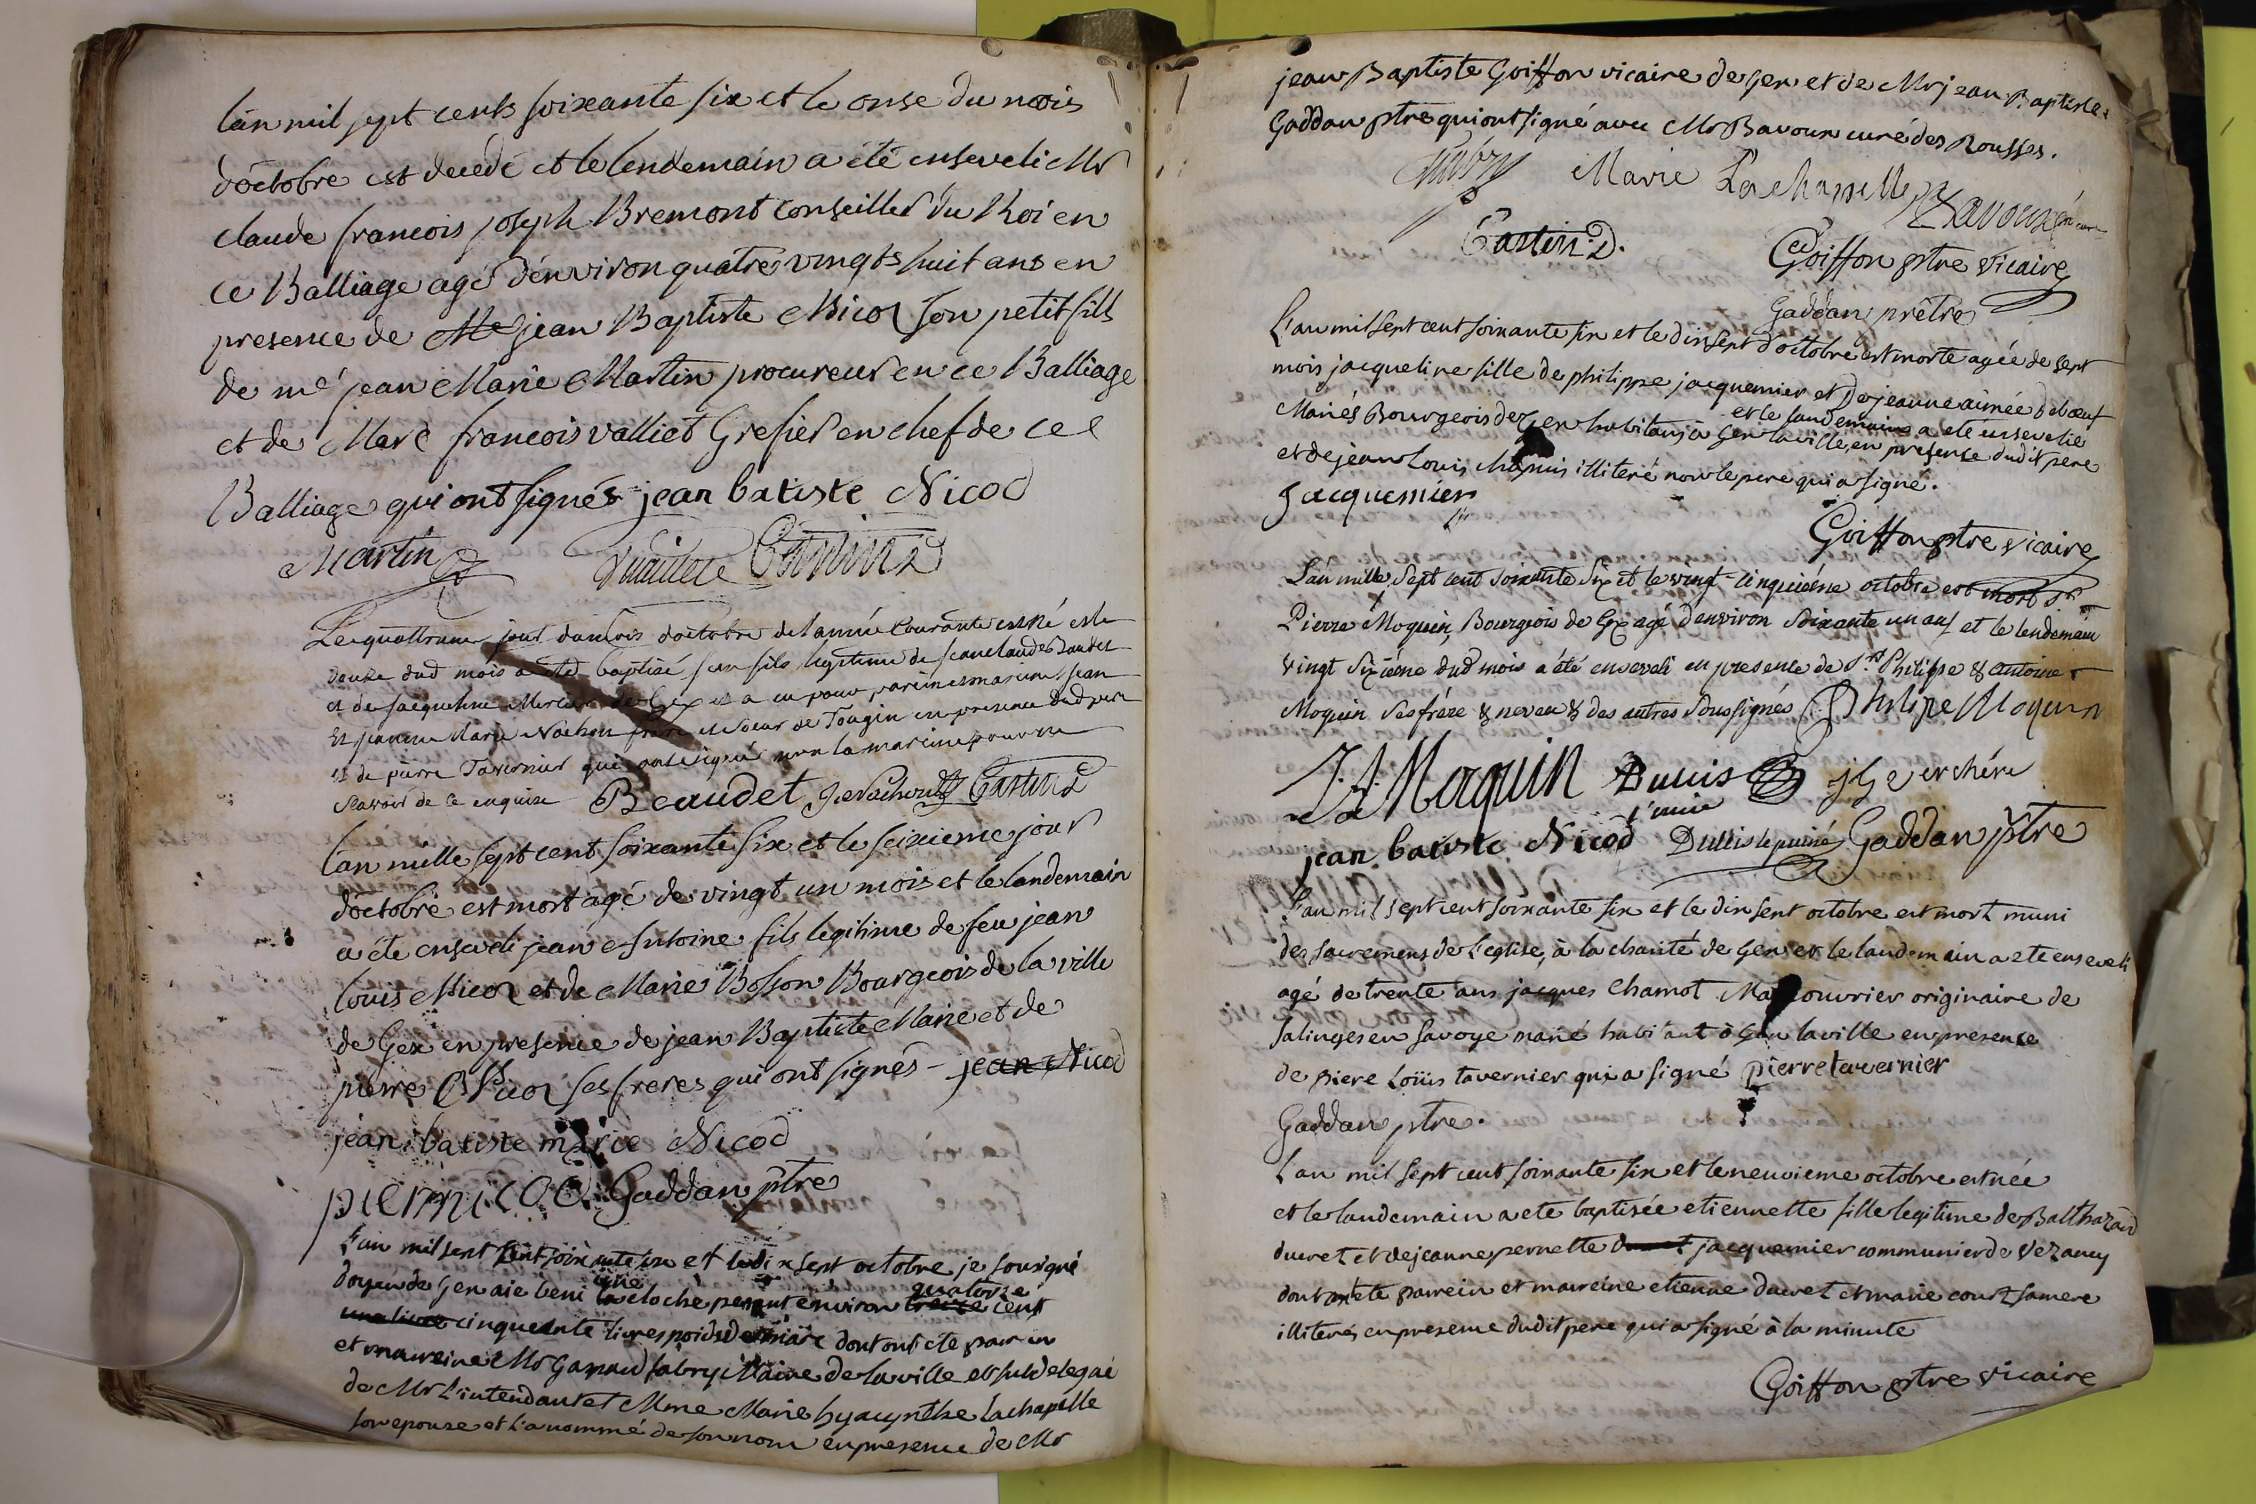 L'an mil sept cents soixante six et le onse du mois
d'octobre est decedé et le lendemain a été enseveli Mr
claude francois joseph Bremont conseiller du Roi en
ce Balliage agé d'environ quatre vingts huit ans en
presence de Me jean Baptiste Nicod son petit fils
de me jean Marie Martin procureur en ce Balliage
et de Marc francois valliet Grefier en chef de ce
Balliage qui ont signés jean batiste Nicod
Martin Castin D
Le quattrieme jour du mois d'octobre de l'année Courante est né et le
douze dud mois a eté baptisé fils legitime de jean claude
et de jacqueline Mercier de Gex et a eu pour parein et mareine jean
Et jeanne Marie Nachon frere et Soeur de Tougin en presence dud pere
et de pierre Tavernier qui ont signé non la mareine pour ne
scavoir de ce enquise Beaudet Castin D
L'an mille sept cent soixante six et le seizieme jour
d'octobre est mort agé de vingt un mois et le landemain
a éte enseveli jean Antoine fils legitime de feu jean
louis Nicod et de Marie Bosson Bourgeois de la ville
de Gex en presence de jean Baptiste Marie et de
pierre Nicod ses freres qui ont signés - jean Nicod
jean batiste marie Nicod
pierre nicod Gaddan ptre
L'an mil sept cent soixante six et le dix sept octobre je sousigné
doyen de Gex aie beni une cloche pesant environ quatorze cent
cinquante livres poids de marc dont ont eté parein
et mareine Mr Garnaud fabry Maire de la ville et subdelegué
de Mr L'intendant et Mme Marie hyacynthe Lachapelle
son epouse et l'a nommé de son nom en presence de Mr
jean Baptiste Goiffon vicaire de Gex et de Mr jean Baptiste
Gaddan ptre qui ont signé avec Mr Bavoux curé des Rousses.
fabry Marie Lachapelle Bavoux curé
Castin D. Goiffon ptre vicaire
Gaddan prêtre
L'an mil sept cent soixante six et le dix sept d'octobre est morte agée de sept
mois jacqueline fille de philippe jacquemier et de jeanne aimée deboeuf
et le landemain a eté ensevelie
Mariés Bourgeois de Gex habitans à Gex la ville, en presence dudit pere
et de jean Louis chapuis illiteré non le pere qui a signé.
Jacquemier
Goiffon ptre vicaire
L'an mille, Sept cent soixante Six et le vingt-cinquième octobre est mort Sr
Pierre Moquin, Bourgeois de Gex agé d'environ Soixante un ans et le lendemain
vingt Sixième dud mois a été enseveli en presence de Srs Philippe & antoine
Moquin Ses frère & neveu & des autres Soussignés Philipe Moquin
J. A Moquin Duuis l'ainé
jean batiste Nicod le puiné Gaddan ptre
L'an mil sept cent soixante six et le dix sept octobre est mort muni
des sacremens de L'eglise, à la charité de Gex et le landemain a eté enseveli
agé de trente ans jacques Chamot ouvrier originaire de
Salinges en Savoye marié habitant à Gex la ville en presence
de Piere Loüis tavernier qui a signé pierre tavernier
Gaddan ptre.
L'an mil sept cent soixante six et le neuvieme octobre est née
et le landemain a eté baptisée etiennette fille legitime de Balthazard
ducret et de jeanne pernette jacquemier communier de Vezancy
dont ont eté parein et mareine etienne ducret et marie court sa mere
illiterés en presence dudit pere qui a signé à la minute
Goiffon ptre vicaire